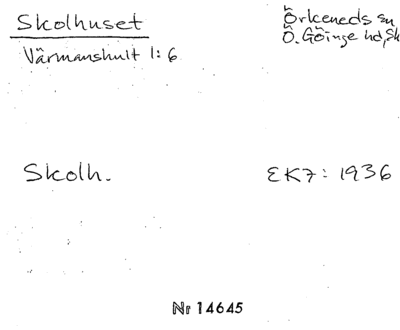 Skolhuset
Värmanshult 1:6
Örkeneds sn
Ö. Göinge hd, Sk
Skolh.
EK7: 1936
Nr 14645